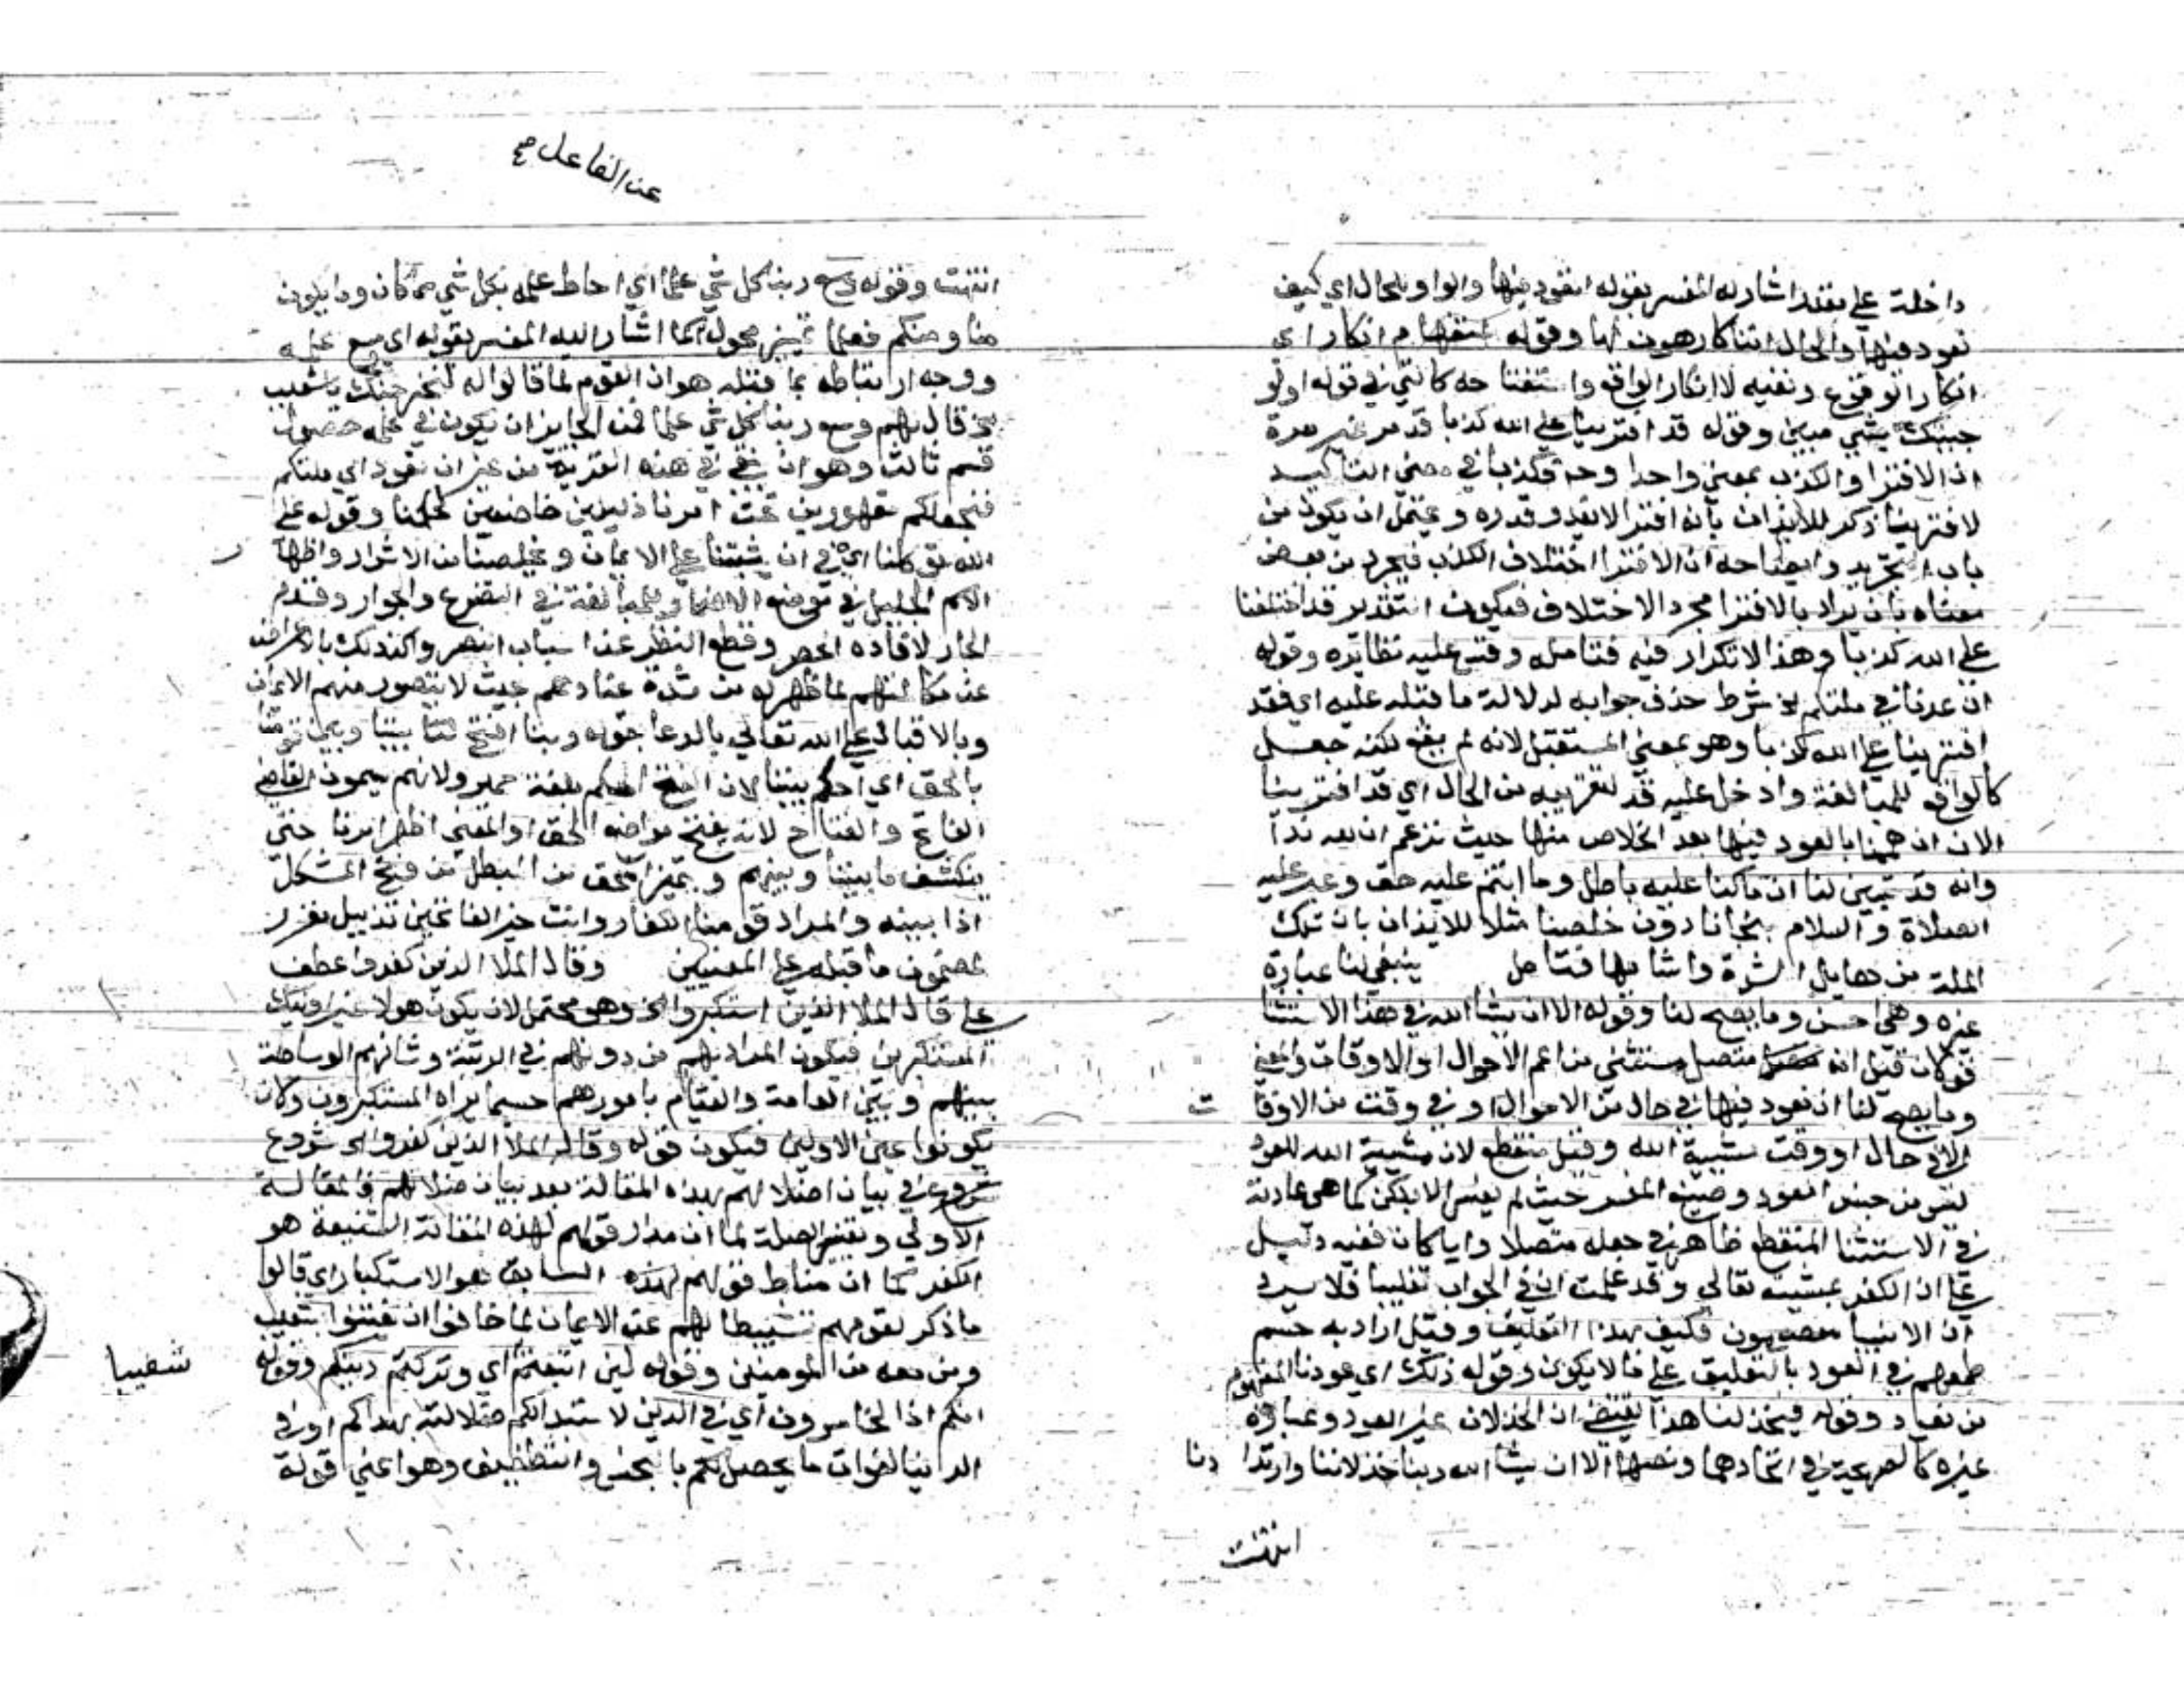 داخلة علي مقدر اشار له المفسر بقوله انعود فيها والواو للحال اي كيف
نعود فيها والحال اننا كارهون لها وقوله استفهام انكار اي
انكار الوقوع ونفيه لا انكار الواقع واستقباحه كالتي في قوله اولو
جيتك بشي مبين وقوله قد افترينا علي الله كذبا قد مر غير مرة
ان الافترا والكذب بمعني واحد وحه فكذبا في معني التاكيد
لافترينا ذكر للايذان بانه افترا لا يقدر قدره ويحتمل ان يكون من
باب التجريد وايضاحه ان الافترا اختلاق الكذب فيجرد من بعض
معناه بان يراد بالافترا مجرد الاختلاق فيكون التقدير قد اختلقنا
علي الله كذبا وهذا لا تكرار فيه فتامله وقس عليه نظائره وقوله
ان عدنا في ملتكم الخ شرط حذف جوابه لدلالة ما قبله عليه اي فقد
افترينا علي الله كذبا وهو بمعني المستقبل لانه لم يقع لكنه جعل
كالواقع للمبالغة وادخل عليه قد لتقريبه من الحال اي قد افترينا
الان ان هممنا بالعود فيها بعد الخلاص منها حيث نزعم ان لله ندا
وانه قد تبين لنا ان ما كنا عليه باطل وما انتم عليه حق وعبر عليه
الصلاة والسلام بنجانا دون خلصنا مثلا للايذان بان تلك
الملة من حبايل الشرة واشابها فتامل ينبغي لنا عبارة
غيره وهي احسن وما يصح لنا وقوله الا ان يشا الله في هذا الاستثنا
قولان قيل انه متصل مستثني من اعم الاحوال او الاوقات والمعني
وما يصح لنا ان نعود فيها في حال من الاحوال او في وقت من الاوقات
الا في حال او وقت مشيية الله وقيل منقطع لان مشيية الله للعود
ليس من جنس العود وصنيع المفسر حيث لم يفسر الا بلكن كما هي عادته
في الاستثنا المنقطع ظاهر في جعله متصلا وايا كان ففيه دليل
علي ان الكفر بمشيته تعالي وقد علمت ان في الجواب تغليبا فلا يرد
ان الانبيا معصومون فكيف بهذا التعليق وقيل اراد به حسم
طمعهم في العود بالتعليق علي ما لا يكون وقوله ذلك اي عودنا المفهوم
من نعود وقوله فيخذلنا هذا يقتضي ان الخذلان غير العود وعبارة
غيره كالصريحة في اتحادهما ونصها الا ان يشا الله ربنا خذلاننا وارتدادنا
انتهت
عن الفاعل صح
انتهت وقوله وسع ربنا كل شي علما اي احاط علمه بكل شي مما كان وما يكون
منا ومنكم فعلما تمييز محول كما اشار اليه المفسر بقوله اي وسع علمه
ووجه ارتباطه بما قبله هو ان القوم لما قالوا له لنخرجنك يا شعيب
الخ قال لهم وسع ربنا كل شي علما فمن الجايز ان يكون في علمه حصول
قسم ثالث وهو ان نبقي في هذه القرية من غير ان نعود اي ملتكم
فنجعلكم مقهورين تحت امرنا ذليلين خاضعين لحكمنا وقوله علي
الله توكلنا اي في ان يثبتنا علي الايمان ويخلصنا من الاشرار واظهار
الاسم الجليل في موضع الاضمار للمبالغة في التضرع والجوار وقدم
الجار لافاده الحصر وقطع النظر عن اسباب النصر واكد ذلك بالاعراض
عن مكالمتهم لما ظهر له من شدة عنادهم بحيث لا يتصور منهم الايمان
وبالاقبال علي الله تعالي بالدعا بقوله ربنا افتح لنا بيننا وبين قومنا
بالحق اي احكم بيننا لان الفتح الحكم بلغة حمير ولانهم يسمون القاضي
الفاتح والفتاح لانه يفتح مواضع الحق او المعني اظهر امرنا حتي
ينكشف ما بيننا وبينهم ويتميز المحق من المبطل من فتح المشكل
اذا بينه والمراد قومنا الكفار وانت خير الفاتحين تذييل مقرر
لمضمون ما قبله علي المعنيين وقال الملا الذين كفروا عطف
علي قال الملا الذين استكبروا الخ وهو محتمل لان يكون هولا غير اوليك
المستكبرين فيكون المراد بهم من دونهم في الرتبة وشانهم الوساطة
بينهم وبين العامة والقيام بامورهم حسبما يراه المستكبرون وكان
يكونوا عين الاولين فيكون قوله وقال الملا الذين كفروا الخ شروع
شروع في بيان اضلالهم بهذه المقالة بعد بيان ضلالهم في المقالة
الاولي وتغيير الصلة لما ان مدار قولهم لهذه المقالة الشنيعة هو
الكفر كما ان مناط قولهم لهذه السابق هو الاستكبار اي قالوا
ما ذكر لقومهم تثبيطا لهم عن الايمان لما خافوا ان يفتنوا بشعيب
ومن معه من المومنين وقوله لين اتبعتم اي وتركتم دينكم وقوله
شعيبا
انكم اذا لخاسرون اي في الدين لاستبدالكم ضلالته بهداكم او في
الدنيا لفوات ما يحصل لكم بالبخس والتطفيف وهو اعني قوله